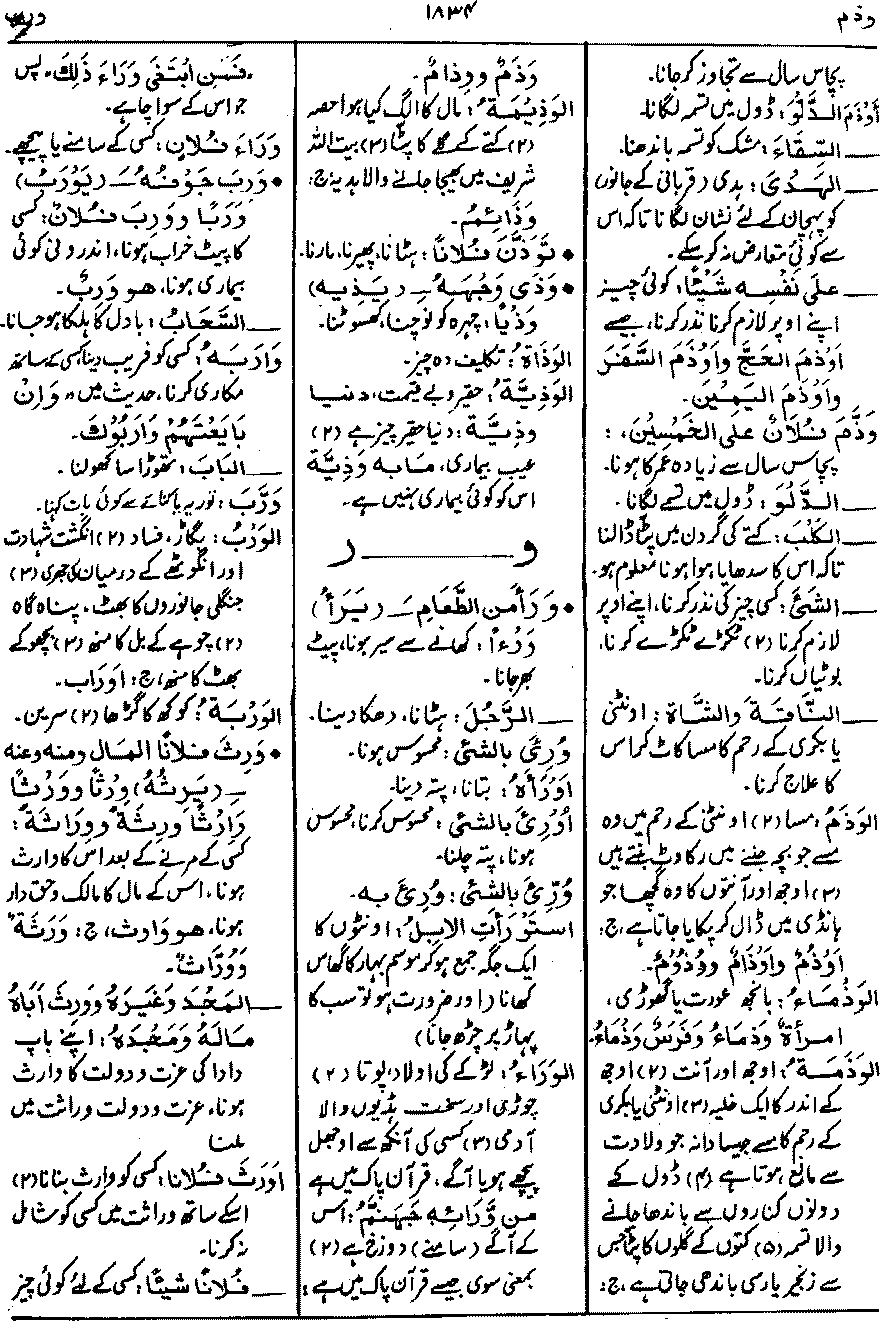 وذم
۱۸۳۴
ورب
پچاس سال سے تجاوز کرجانا۔
أَوْذَمَ الدَّلْوَ: ڈول میں تسمہ لگانا۔
ــــ السِّقَاءَ: مشک کو تسمہ باندھنا۔
ــــ الهَدْىَ: ہدی (قربانی کے جانور)
کو پہچان کے لئے نشان لگانا تاکہ اس
سے کوئی متعارض نہ ہو سکے۔
ــــ علَى نَفْسِه شَيْئًا: کوئی چیز
اپنے اوپر لازم کرنا نذر کرنا، جیسے
اَوْذَمَ الحَجَّ واَوْذَمَ السَّفَرَ
واَوْذَمَ اليَمِيْنَ۔
وَذَّمَ فُلَانٌ علَى الخَمْسِيْنَ:
پچاس سال سے زیادہ عمر کا ہونا۔
ــــ الدَّلْوَ: ڈول میں تسمے لگانا۔
ــــ الكَلْبَ: کتے کی گردن میں پٹا ڈالنا
تاکہ اس کا سدھایا ہوا ہونا معلوم ہو۔
ــــ الشَّئَ: کسی چیز کی نذر کرنا، اپنے اوپر
لازم کرنا (۲) ٹکڑے ٹکڑے کرنا،
بوٹیاں کرنا۔
ــــ النَّاقَةَ والشَّاةَ: اونٹنی
یا بکری کے رحم کا مسا کاٹ کر اس
کا علاج کرنا۔
الوَذَمُ: مسا (۲) اونٹنی کے رحم میں وہ
مسے جو بچہ جننے میں رکاوٹ بنتے ہیں
(۳) اوجھ اور آنتوں کا وہ گچھا جو
ہانڈی میں ڈال کر پکایا جاتا ہے، ج:
اَوْذُمٌ واَوْذَامٌ ووُذُوْمٌ۔
الوَذْمَاءُ: بانجھ عورت یا گھوڑی،
امرأةٌ وَذْمَاءُ وفَرَسٌ وَذْمَاءُ۔
الوَذَمَةُ: اوجھ اور آنت (۲) اوجھ
کے اندر کا ایک خلیہ (۳) اونٹنی یا بکری
کے رحم کا مسے جیسا دانہ جو ولادت
سے مانع ہوتا ہے (۴) ڈول کے
دونوں کناروں سے باندھا جانے
والا تسمہ (۵) کتوں کے گلوں کا پٹا جس
سے زنجیر یا رسی باندھی جاتی ہے، ج:
وَذَمٌ ووِذامٌ۔
الوَذِيْمَةُ: مال کا الگ کیا ہوا حصہ
(۲) کتے کے گلے کا پٹا (۳) بیت اللہ
شریف میں بھیجا جانے والا ہدیہ، ج:
وَذَائِمُ۔
• تَوَذَّنَ فُلَانًا: ہٹانا، پھیرنا، مارنا۔
• وَذَى وَجْهَهُ ــِـ (يَذِيه)
وَذْيًا: چہرہ کو نوچنا، کھسوٹنا۔
الوَذَاةُ: تکلیف دہ چیز۔
الوَذِيَّةُ: حقیر و بے قیمت، دنیا
وذِيَّة: دنیا حقیر چیز ہے (۲)
عیب بیماری، مابه وَذِيَّة
اس کو کوئی بیماری نہیں ہے۔
و ــــــــ ر
• وَرَأَ مِن الطَّعَامِ ــَـ (يَرَأُ)
وَرْءاً: کھانے سے سیر ہونا، پیٹ
بھر جانا۔
ــــ الرَّجُلَ: ہٹانا، دھکا دینا۔
وُرِئَ بالشئِ: محسوس ہونا۔
اَوْرَأَهُ: بتانا، پتہ دینا۔
اُوْرِئَ بالشئِ: محسوس کرنا، محسوس
ہونا، پتہ چلنا۔
وُرِّئَ بالشئِ: وُرِئَ به۔
استَوْرَأَتِ الابِلُ: اونٹوں کا
ایک جگہ جمع ہو کر موسم بہار کا گھاس
کھانا (اور ضرورت ہو تو سب کا
پہاڑ پر چڑھ جانا)
الوَرَاءُ: لڑکے کی اولاد، پوتا (۲)
چوڑی اور سخت ہڈیوں والا
آدمی (۳) کسی کی آنکھ سے اوجھل
پیچھے ہو یا آگے، قرآن پاک میں ہے
مِن وَّرَائِه جَهَنَّمُ: اس
کے آگے (سامنے) دوزخ ہے (۴)
بمعنی سوی جیسے قرآن پاک میں ہے:
"فَمَنِ ابْتَغَى وَرَاءَ ذَلِكَ" پس
جو اس کے سوا چاہے۔
وَرَاءَ فُلَانٍ: کسی کے سامنے یا پیچھے۔
• وَرِبَ جَوْفُهُ ــَـ (يَوْرَبُ)
وَرَبًا ووَرِبَ فُلَانٌ: کسی
کا پیٹ خراب ہونا، اندرونی کوئی
بیماری ہونا، هو وَرِبٌ۔
ــــ السَّحَابُ: بادل کا ہلکا ہو جانا۔
وَارَبَهُ: کسی کو فریب دینا، کسی کے ساتھ
مکاری کرنا، حدیث میں "وَإِنْ
بَايَعْتَهُمْ وَارَبُوْكَ۔
ــــ البَابَ: تھوڑا سا کھولنا۔
وَرَّبَ: توریہ یا کنائے سے کوئی بات کہنا۔
الوَرْبُ: بگاڑ، فساد (۲) انگشت شہادت
اور انگوٹھے کے درمیان کی جھری (۳)
جنگلی جانوروں کا بھٹ، پناہ گاہ
(۴) چوہے کے بل کا منھ (۳) بچھو کے
بھٹ کا منھ، ج: اَوْرَاب۔
الوَرْبَةُ: کوکھ کا گڑھا (۲) سرین۔
• وَرِثَ فلانًا المال ومنه وعنه
ــِـ (يَرِثُهُ) وِرْثًا ووَرْثًا
وَاِرْثًا ورِثَةً ووِرَاثَةً:
کسی کے مرنے کے بعد اس کا وارث
ہونا، اس کے مال کا مالک و حق دار
ہونا، هو وَارِث، ج: وَرَثَةٌ
وَوُرَّاثٌ۔
ــــ المَجْدَ وغَيْرَهُ ووَرِثَ أَبَاهُ
مَالَهُ ومَجْدَهُ: اپنے باپ
دادا کی عزت و دولت کا وارث
ہونا، عزت و دولت وراثت میں
ملنا
اَوْرَثَ فُلَانًا: کسی کو وارث بنانا (۲)
اسکے ساتھ وراثت میں کسی کو شامل
نہ کرنا۔
ــــ فُلَانًا شيئًا: کسی کے لئے کوئی چیز